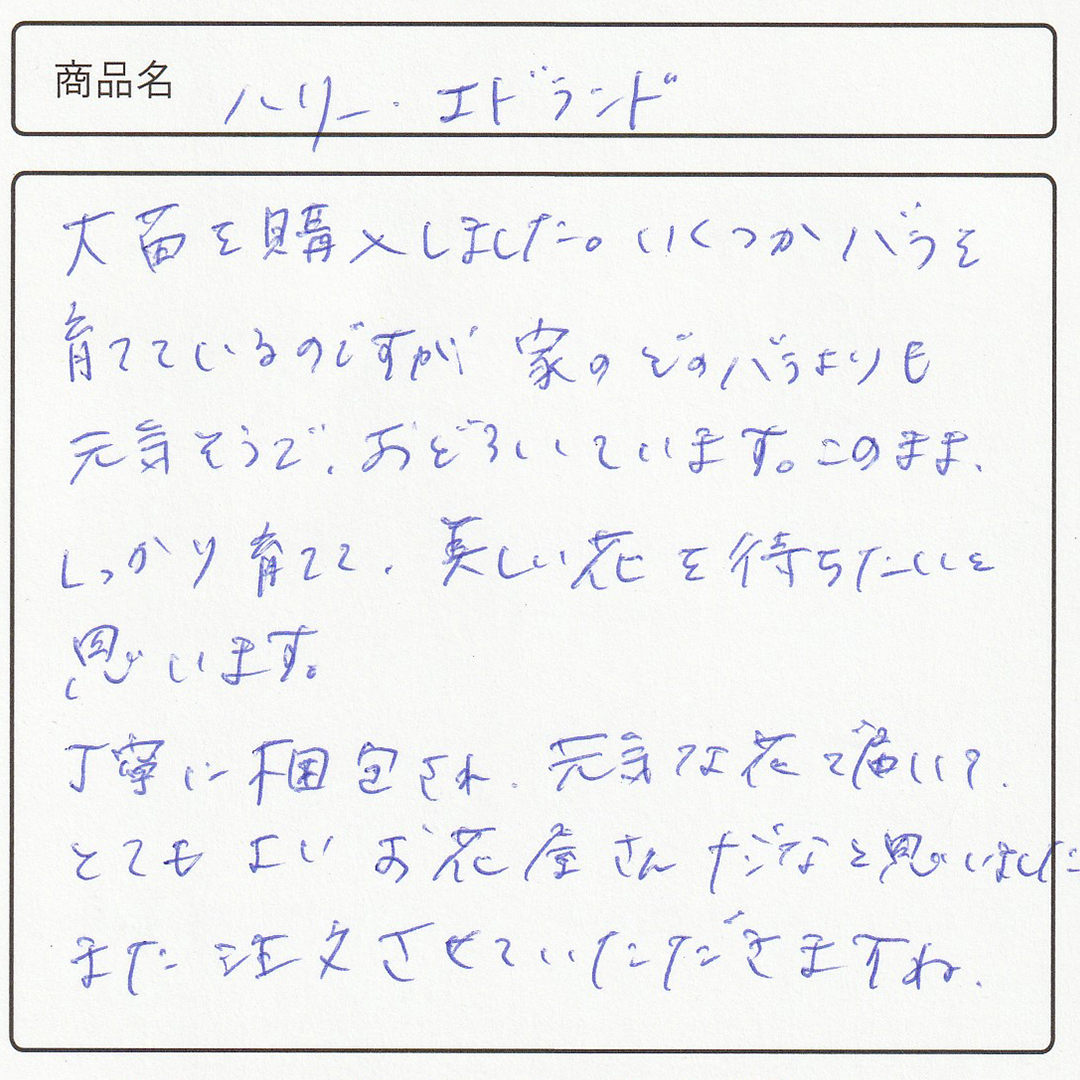 商品名 ハリー・エドランド
大苗を購入しました。いくつかバラを
育てているのですが 家のどのバラよりも
元気そうで、おどろいています。このまま、
しっかり育てて、美しい花を待ちたいと
思います。
丁寧に梱包され、元気な花で届いて、
とてもよいお花屋さんだなと思いました
また注文させていただきますね。